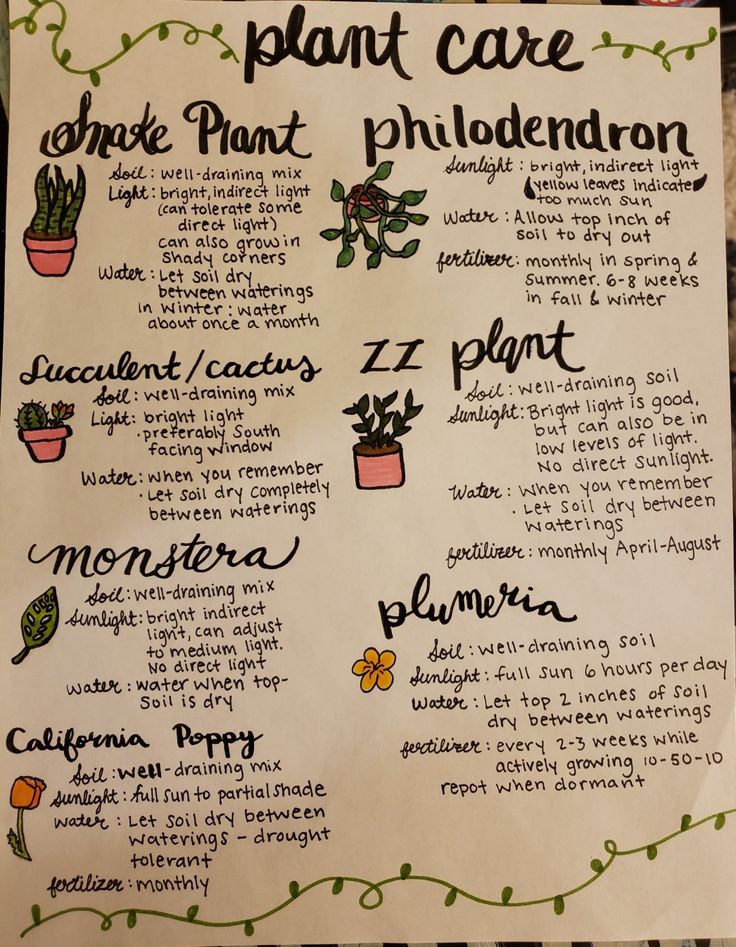 plant care
Snake Plant
Soil: well-draining mix
Light: bright, indirect light
(can tolerate some
direct light)
can also grow in
shady corners
Water: Let soil dry
between waterings
in winter: water
about once a month
Succulent/cactus
Soil: well-draining mix
Light: bright light
· preferably South
facing window
Water: when you remember
· Let soil dry completely
between waterings
monstera
Soil: well-draining mix
Sunlight: bright indirect
light, can adjust
to medium light.
No direct light
Water: water when top-
soil is dry
California Poppy
Soil: well-draining mix
Sunlight: full sun to partial shade
Water: Let soil dry between
waterings - drought
tolerant
fertilizer: monthly
philodendron
Sunlight: bright, indirect light
yellow leaves indicate
too much sun
Water: Allow top inch of
soil to dry out
fertilizer: monthly in spring &
summer. 6-8 weeks
in fall & winter
ZZ plant
Soil: well-draining soil
Sunlight: Bright light is good,
but can also be in
low levels of light.
No direct sunlight.
Water: when you remember
· Let soil dry between
waterings
fertilizer: monthly April-August
plumeria
Soil: well-draining soil
Sunlight: full sun 6 hours per day
Water: Let top 2 inches of soil
dry between waterings
fertilizer: every 2-3 weeks while
actively growing 10-50-10
repot when dormant